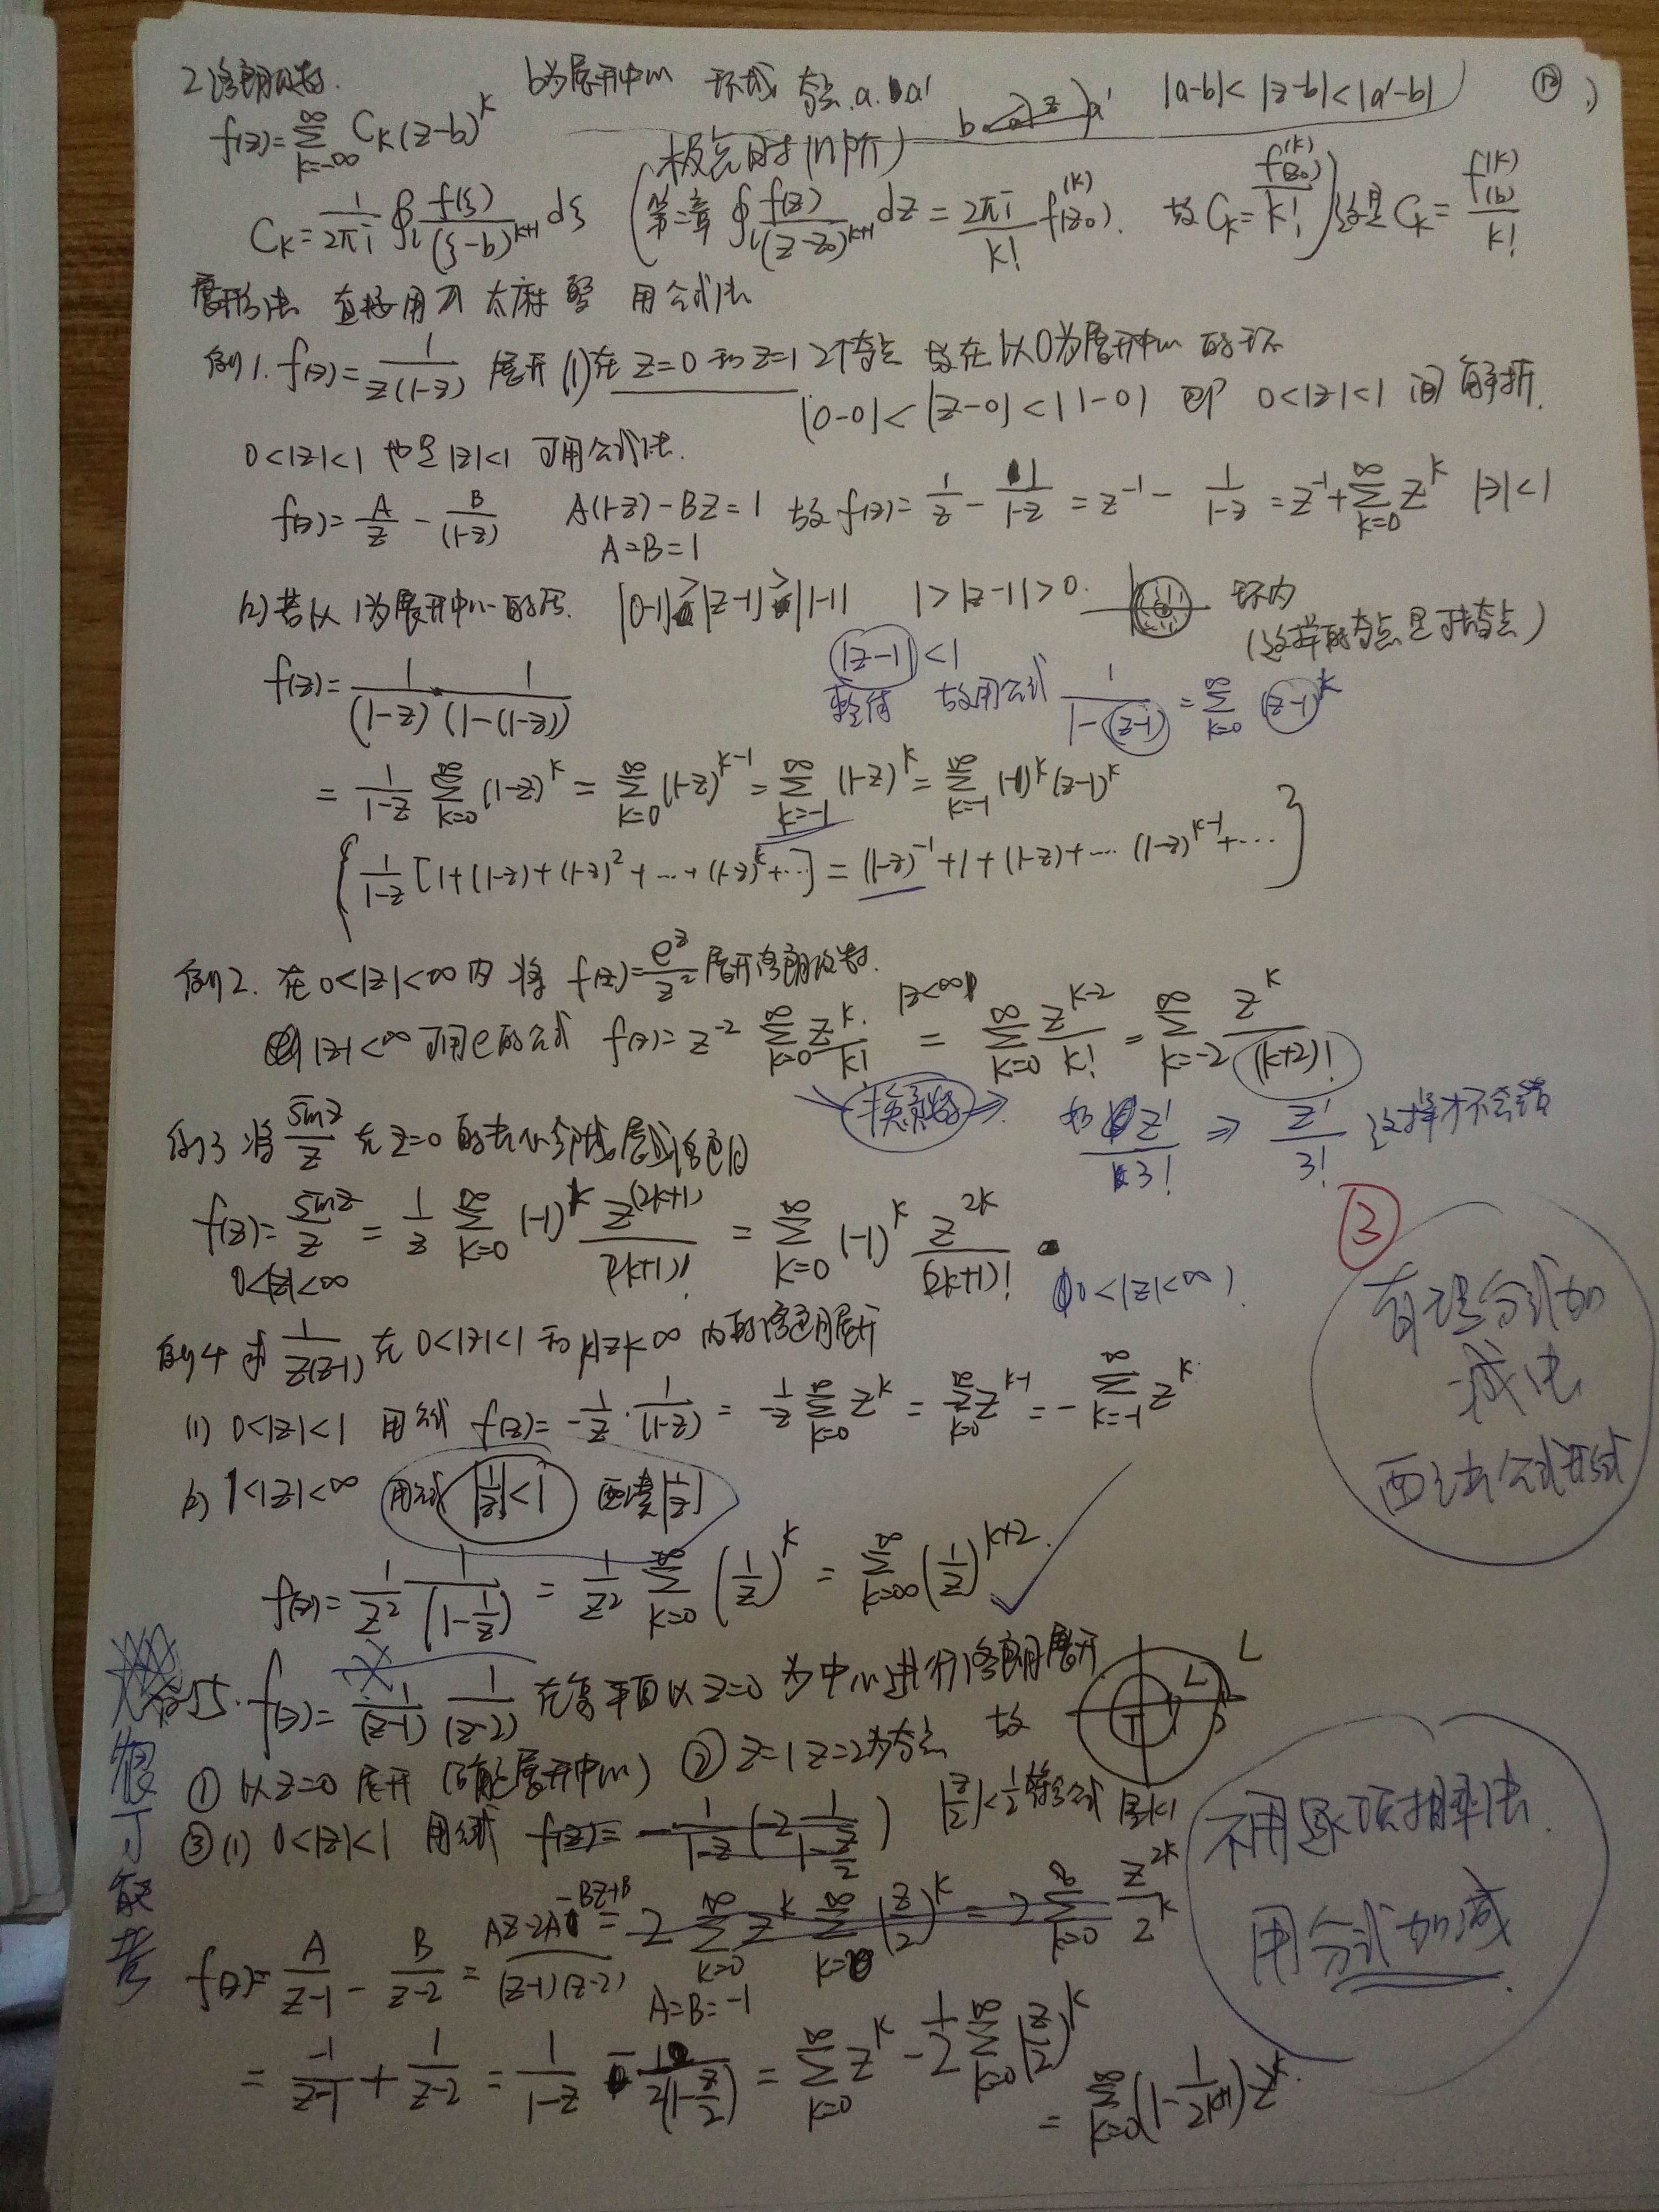 2 洛朗级数. b为展开中心 环域 奇点.a. a' b a z a' |a-b|<|z-b|<|a'-b| ⑫
f(z)=∑_{k=-∞}^{∞} C_k(z-b)^k (极点时(n阶)
C_k=1/(2πi) ∮_L f(ξ)/(ξ-b)^{k+1} dξ (第二章 ∮_L f(z)/(z-z₀)^{k+1} dz = 2πi/k! f^{(k)}(z₀). 故 C_k=f^{(k)}(z₀)/k!) 这是 C_k=f^{(k)}(b)/k!
展开方法 直接用 太麻烦 用公式法
例1. f(z)=1/(z(1-z)) 展开 (1)在 z=0 和 z=1 2个奇点 故在以0为展开中心 的环
|0-0|<|z-0|<|1-0| 即 0<|z|<1 间 解析.
0<|z|<1 也是|z|<1 可用公式法.
f(z)=A/z - B/(1-z) A(1-z)-BZ=1 故 f(z)=1/z - 1/(1-z) = z^{-1} - 1/(1-z) = z^{-1}+∑_{k=0}^{∞} z^k |z|<1
A=B=1
(2) 若以1为展开中心的话. |0-1|>|z-1|>|1-1| 1>|z-1|>0. 环内
(这样的奇点是可去奇点)
f(z)=1/(1-z) · 1/(1-(1-z)) |z-1|<1
整体 故用公式 1/(1-(z-1)) = ∑_{k=0}^{∞} (z-1)^k
= 1/(1-z) ∑_{k=0}^{∞} (1-z)^k = ∑_{k=0}^{∞} (1-z)^{k-1} = ∑_{k=-1}^{∞} (1-z)^k = ∑_{k=-1}^{∞} (-1)^k (z-1)^k
{ 1/(1-z) [1+(1-z)+(1-z)²+…+(1-z)^k+…] = (1-z)^{-1}+1+(1-z)+…(1-z)^{k-1}+… }
例2. 在 0<|z|<∞ 内 将 f(z)=e^z/z² 展开洛朗级数.
|z|<∞ 可用e的公式 f(z)= z^{-2} ∑_{k=0}^{∞} z^k/k! |z|<∞ = ∑_{k=0}^{∞} z^{k-2}/k! = ∑_{k=-2}^{∞} z^k/(k+2)!
换系数 如 z'/3! ⇒ z'/3! 这样才不会错
例3 将 sinz/z 在 z=0 的去心邻域展成洛朗
f(z)=sinz/z = 1/z ∑_{k=0}^{∞} (-1)^k z^{(2k+1)}/(2k+1)! = ∑_{k=0}^{∞} (-1)^k z^{2k}/(2k+1)!
0<|z|<∞ (0<|z|<∞)
例4 求 1/(z(z-1)) 在 0<|z|<1 和 1<|z|<∞ 内的洛朗展开
(1) 0<|z|<1 用公式 f(z)= -1/z · 1/(1-z) = -1/z ∑_{k=0}^{∞} z^k = ∑_{k=0}^{∞} z^{k-1} = -∑_{k=-1}^{∞} z^k
(2) 1<|z|<∞ 用公式 |1/z|<1 |1/z|
f(z)= 1/z² 1/(1-1/z) = 1/z² ∑_{k=0}^{∞} (1/z)^k = ∑_{k=∞}^{∞} (1/z)^{k+2}.
③
有理分式加
减法
西
公式形式
很可能考
例5. f(z)= 1/(z-1) 1/(z-2) 在复平面以 z=0 为中心进行洛朗展开 L L
① 以 z=0 展开 (确定展开中心) ② z=1 z=2为奇点 故
③(1) 0<|z|<1 用公式 f(z)= -1/(1-z) (-2 1/(1-z/2)) |z/2|<1/2 符合公式 |z|<1
= 2 ∑_{k=0}^{∞} z^k ∑_{k=0}^{∞} (z/2)^k = 2 ∑_{k=0}^{∞} z^{2k}/2^k
f(z)= A/(z-1) - B/(z-2) = AZ-2A-BZ+B/(z-1)(z-2) A=B=-1
= -1/(z-1) + 1/(z-2) = 1/(1-z) - 1/(2(1-z/2)) = ∑_{k=0}^{∞} z^k - 1/2 ∑_{k=0}^{∞} (z/2)^k
= ∑_{k=0}^{∞} (1-1/2^{k+1}) z^k.
不用逐项相乘法.
用分式加减